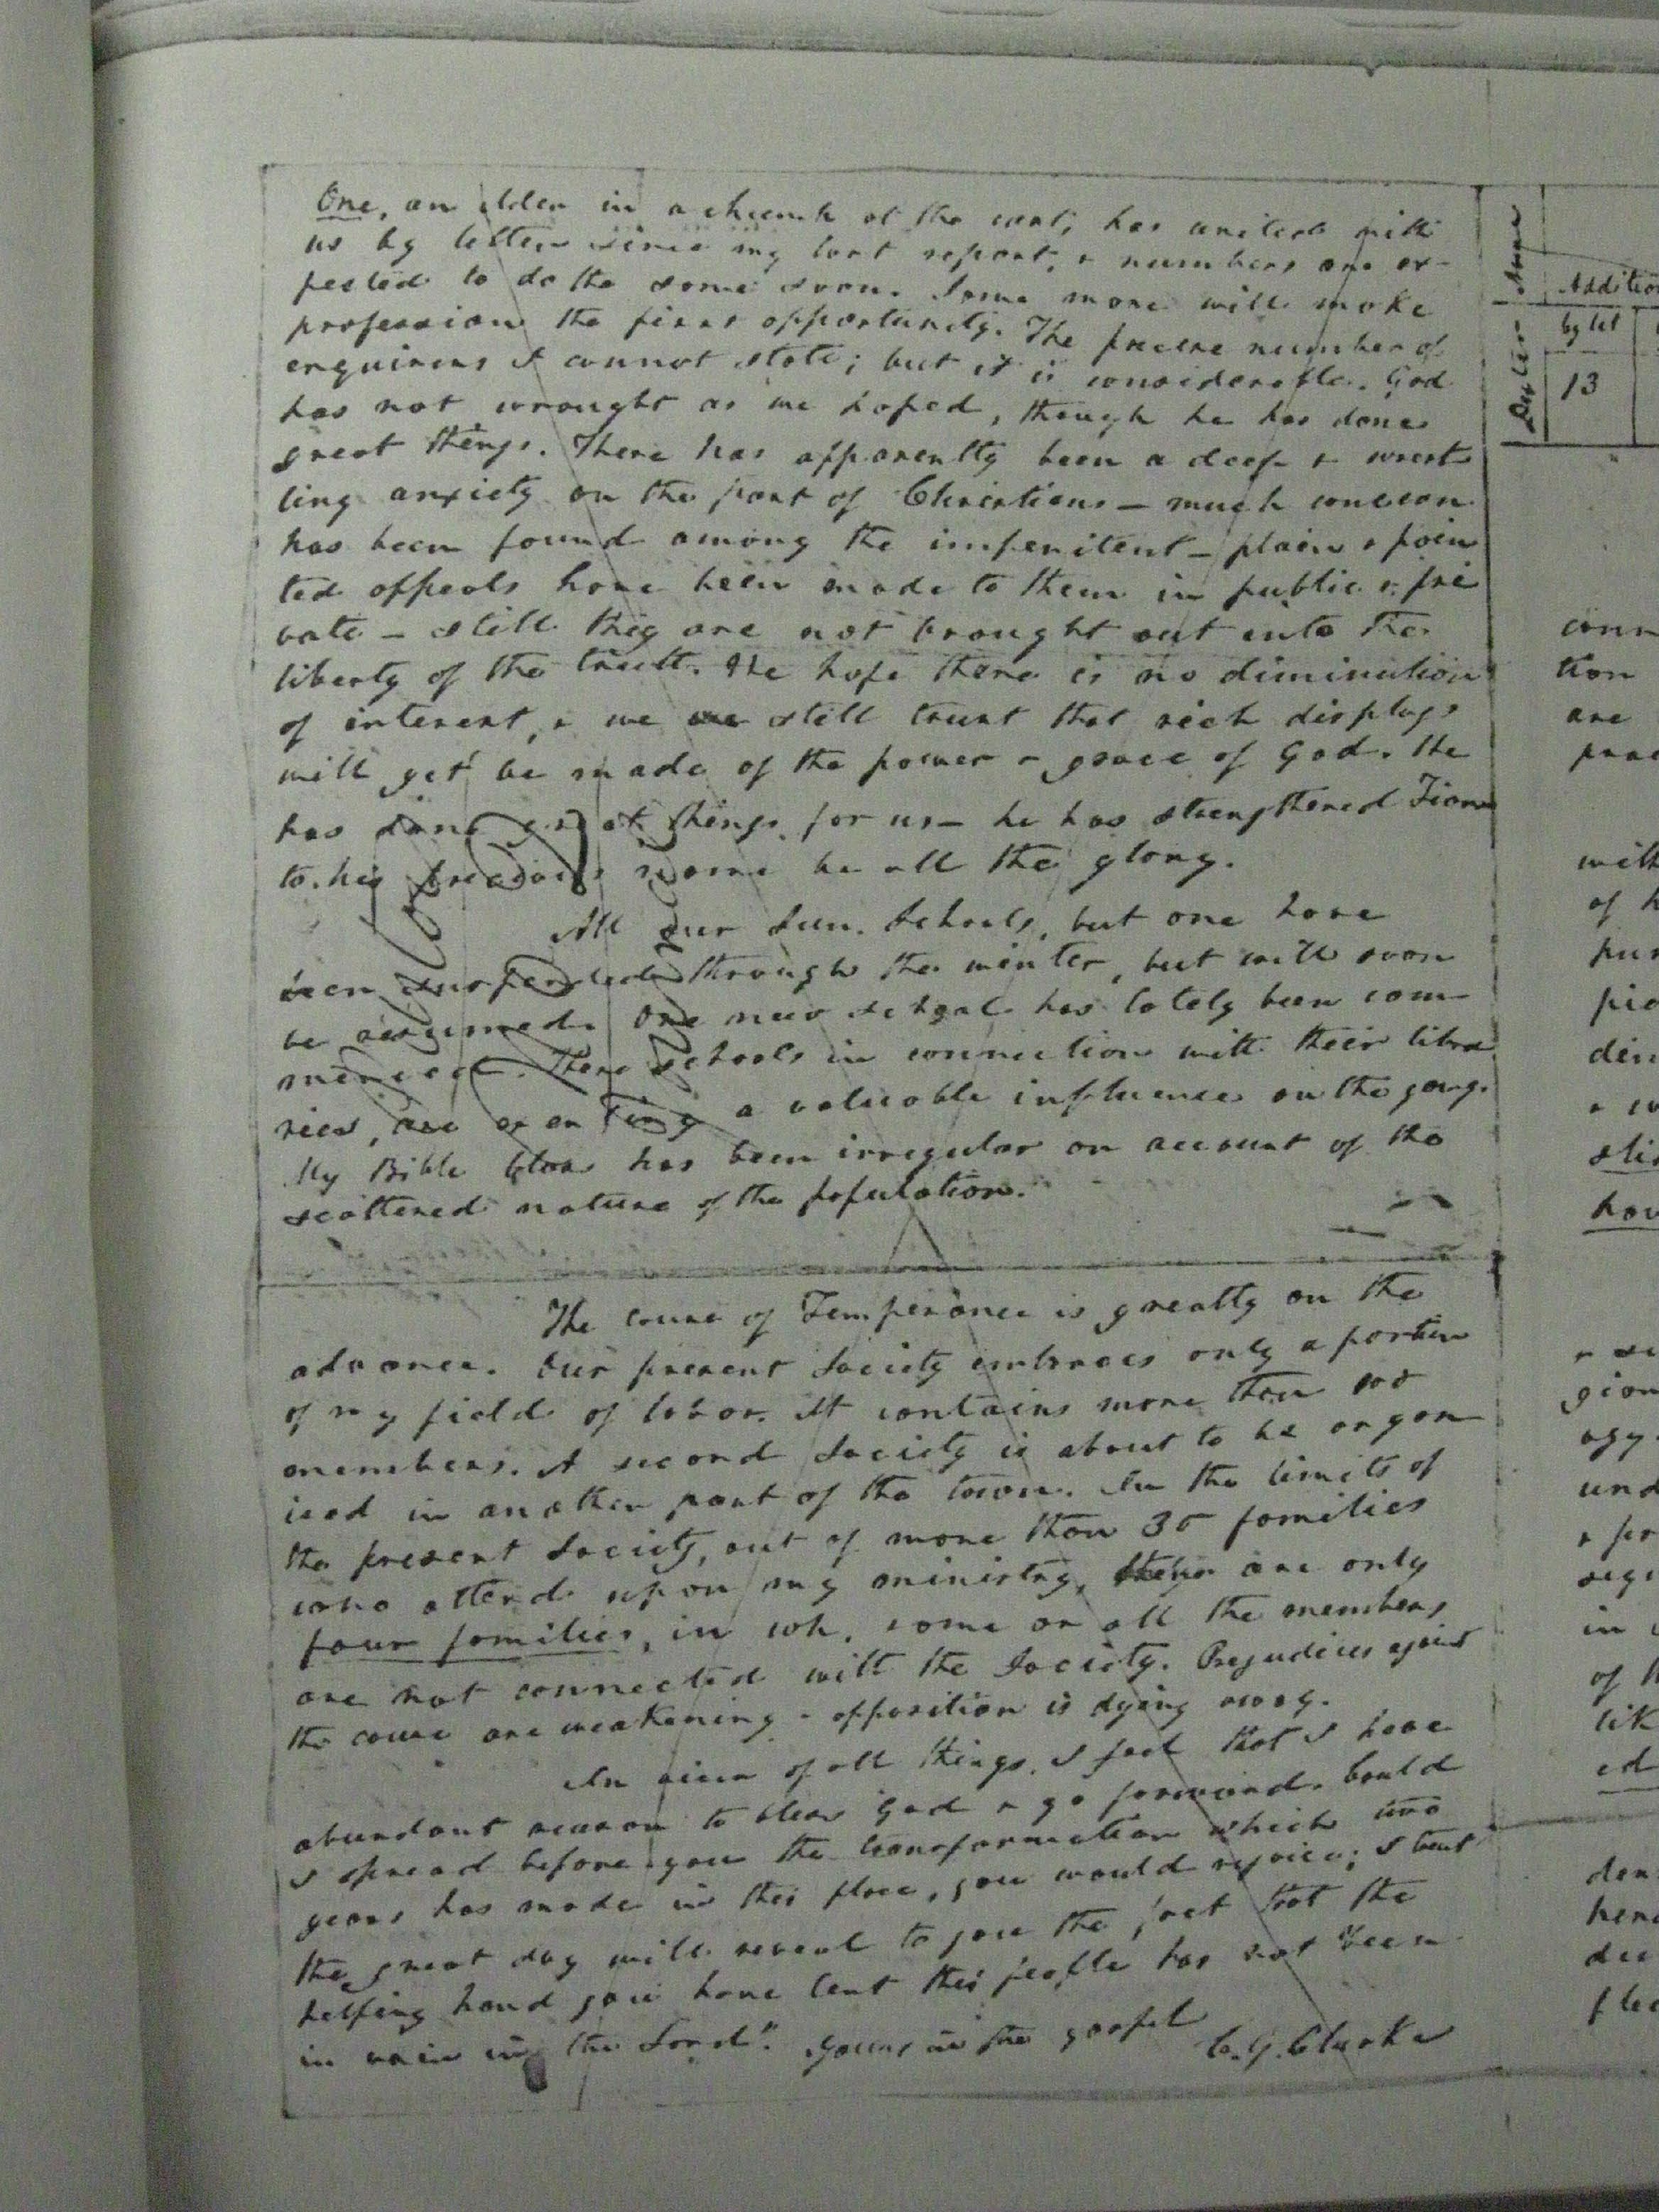 One, an elder in a church at the east, has united with
us by letter since my last report, & numbers are ex-
pected to do the same soon. Some more will make
profession the first opportunity. The precise number of
enquirers I cannot state; but it is considerable. God
has not wrought as we hoped, though he has done
great things. There has apparently been a deep & wrest
ling anxiety on the part of Christians — much concern
has been found among the impenitent — plain & poin
ted appeals have been made to them in public & pri
vate — still they are not brought out into the
liberty of the truth. We hope there is no diminution
of interest, & we still trust that rich displays
will yet be made of the power & grace of God. He
has done great things for us — he has strengthened Zion
to his precious name be all the glory.
All our Sun. Schools, but one have
been suspended through the winter, but will soon
be resumed. One new school has lately been com
menced. These schools in connection with their libra
ries, are exerting a valuable influence on the young.
My Bible Class has been irregular on account of the
scattered nature of the population.
The cause of Temperance is greatly on the
advance. Our present Society embraces only a portion
of my field of labor. It contains more than
members. A second Society is about to be organ
ized in another part of the town. In the limits of
the present Society, out of more than 30 families
who attend upon my ministry, there are only
four families, in wh. some or all the members
are not connected with the Society. Prejudices against
the cause are weakening & opposition is dying away.
In view of all things, I feel that I have
abundant reason to bless God & go forward. Could
I spread before you the transformation which two
years has made in this place, you would rejoice; I trust
the great day will reveal to you the fact that the
helping hand you have lent this people has not been
in vain in the Lord". Yours in the gospel
C. G. Clarke
Addition
by let
13
Dexter
conn
tion
are
prac
with
of h
pur
den
hav
gion
und
in
of h
lik
ed
den